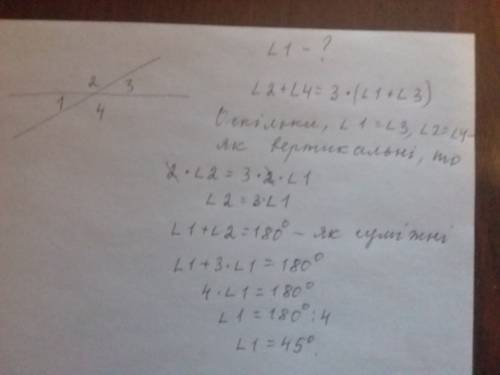 ∠1 - ?
2 3
1 4
∠2+∠4=3·(∠1+∠3)
Оскільки, ∠1=∠3, ∠2=∠4 -
як вертикальні, то
2·∠2=3·2·∠1
∠2=3·∠1
∠1+∠2=180° - як суміжні
∠1+3·∠1=180°
4·∠1=180°
∠1=180°:4
∠1=45°.